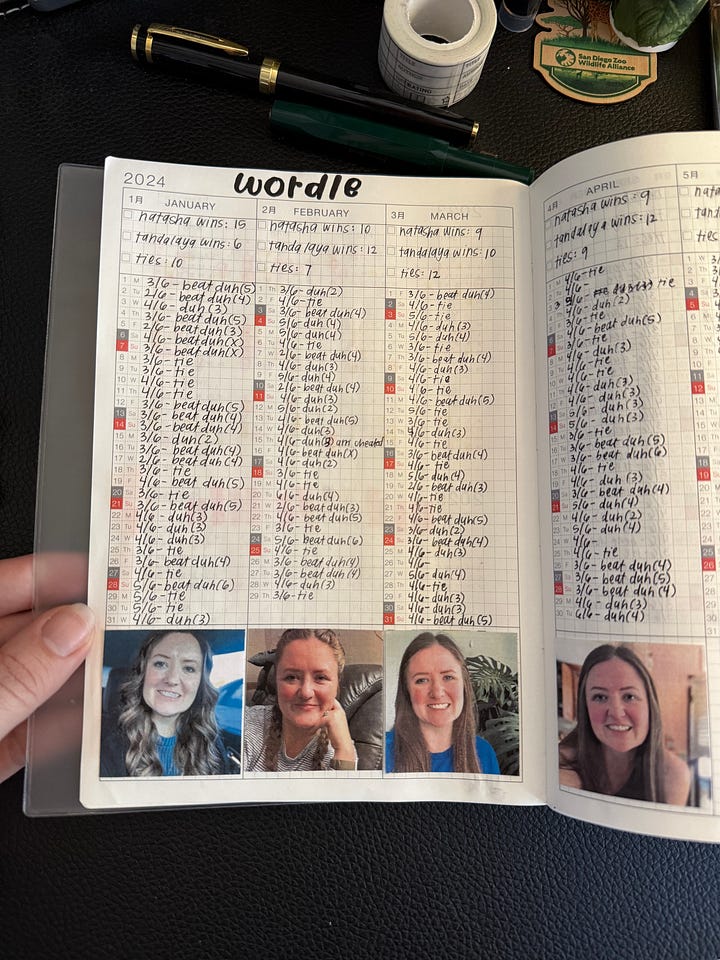 San Diego Zoo
Wildlife Alliance
TITLE
RATING
2024
wordle
1月 JANUARY
natasha wins: 15
tandalaya wins: 6
ties: 10
1 M 3/6- beat duh(5)
2 Tu 2/6- beat duh(4)
3 W 4/6- duh (3)
4 Th 3/6- beat duh(5)
5 F 2/6- beat duh(3)
6 Sa 4/6- beat duh(X)
7 Su 3/6- beat duh(X)
8 M 3/6- tie
9 Tu 4/6- tie
10 W 4/6- tie
11 Th 4/6- tie
12 F 3/6- beat duh(5)
13 Sa 3/6- beat duh(4)
14 Su 3/6- beat duh(4)
15 M 3/6- duh(2)
16 Tu 3/6- beat duh(4)
17 W 2/6- beat duh(4)
18 Th 3/6- tie
19 F 4/6- beat duh(5)
20 Sa 3/6- tie
21 Su 3/6- beat duh(5)
22 M 4/6- duh(3)
23 Tu 4/6- duh(3)
24 W 4/6- duh(3)
25 Th 3/6- tie
26 F 3/6- beat duh(4)
27 Sa 4/6- tie
28 Su 5/6- beat duh(6)
29 M 5/6- tie
30 Tu 5/6- tie
31 W 4/6- duh(3)
2月 FEBRUARY
natasha wins: 10
tandalaya wins: 12
ties: 7
1 Th 3/6- duh(2)
2 F 4/6- tie
3 Sa 3/6- beat duh(4)
4 Su 5/6- duh(4)
5 M 5/6- duh(4)
6 Tu 4/6- tie
7 W 2/6- beat duh(4)
8 Th 4/6- duh(3)
9 F 5/6- duh(4)
10 Sa 2/6- beat duh(4)
11 Su 4/6- duh(3)
12 M 5/6- duh(2)
13 Tu 4/6- beat duh(5)
14 W 4/6- duh(3)
15 Th 4/6- duh(3) am cheated
16 F 4/6- beat duh(X)
17 Sa 4/6- duh(2)
18 Su 3/6- tie
19 M 4/6- tie
20 Tu 4/6- duh(4)
21 W 2/6- beat duh(3)
22 Th 4/6- beat duh(5)
23 F 3/6- tie
24 Sa 5/6- beat duh(6)
25 Su 4/6- tie
26 M 3/6- beat duh(4)
27 Tu 3/6- beat duh(4)
28 W 4/6- duh(3)
29 Th 3/6- tie
3月 MARCH
natasha wins: 9
tandalaya wins: 10
ties: 12
1 F 3/6- beat duh(4)
2 Sa 4/6- tie
3 Su 5/6- tie
4 M 4/6- duh(3)
5 Tu 5/6- duh(4)
6 W 3/6- tie
7 Th 3/6- beat duh(4)
8 F 4/6- duh(3)
9 Sa 4/6- tie
10 Su 4/6- tie
11 M 4/6- beat duh(5)
12 Tu 5/6- tie
13 W 3/6- tie
14 Th 4/6- duh(3)
15 F 4/6- tie
16 Sa 3/6- beat duh(4)
17 Su 4/6- tie
18 M 5/6- duh(4)
19 Tu 2/6- beat duh(3)
20 W 4/6- tie
21 Th 4/6- tie
22 F 4/6- beat duh(5)
23 Sa 3/6- duh(2)
24 Su 3/6- beat duh(4)
25 M 4/6- duh(3)
26 Tu 4/6-
27 W 5/6- duh(4)
28 Th 4/6- tie
29 F 4/6- duh(3)
30 Sa 4/6- duh(3)
31 Su 4/6- beat duh(5)
4月 APRIL
natasha wins: 9
tandalaya wins: 12
ties: 9
4/6- tie
4/6- tie
tie
4/6- duh(2)
3/6- tie
3/6- beat duh(5)
4/6- tie
4/6- duh(3)
4/6- tie
4/6- tie
4/6- duh(3)
4/6- duh(3)
5/6- duh(3)
5/6- duh(3)
3/6- tie
3/6- beat duh(5)
3/6- beat duh(6)
4/6- tie
4/6- duh(3)
3/6- beat duh(4)
5/6- duh(4)
4/6- duh(2)
5/6- duh(4)
4/6-
4/6- tie
3/6- beat duh(4)
3/6- beat duh(5)
3/6- beat duh(4)
4/6- duh(3)
6/6- duh(4)
5月